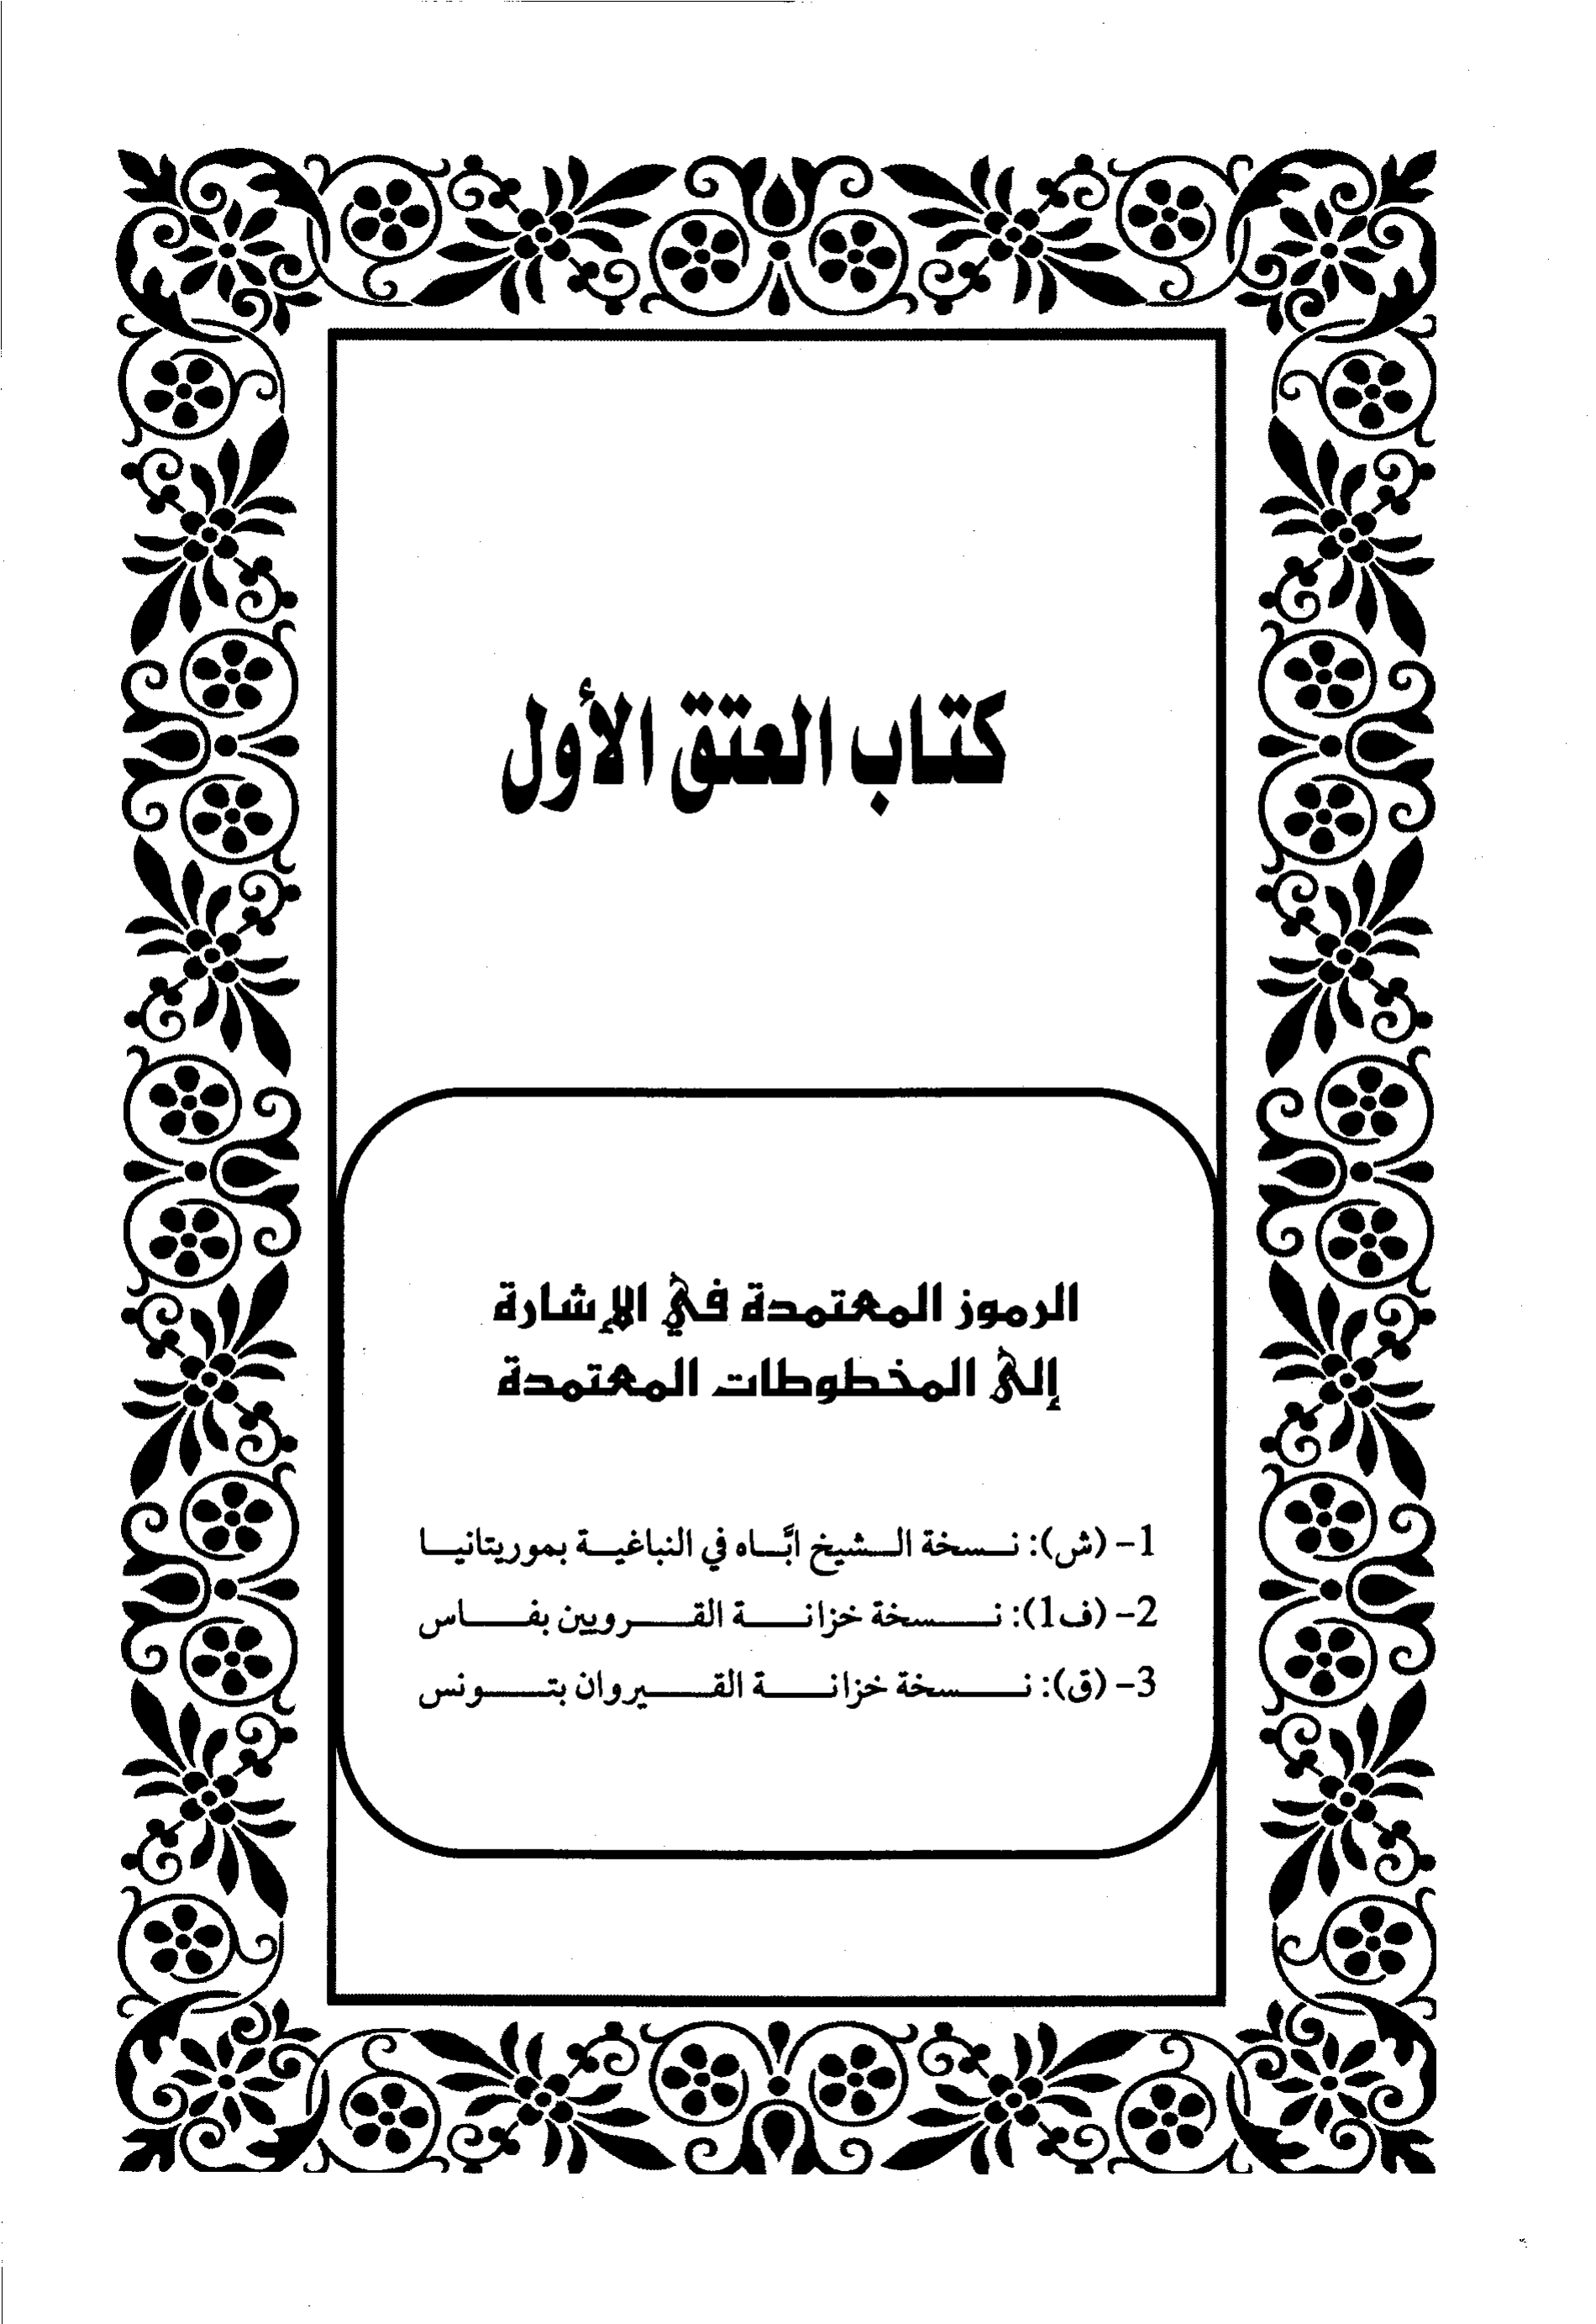 كتاب العتق الأول
الرموز المعتمدة في الإشارة
إلى المخطوطات المعتمدة
1- (ش): نسخة الشيخ ابَّاه في النباغية بموريتانيا
2- (ف1): نسخة خزانة القرويين بفاس
3- (ق): نسخة خزانة القيروان بتونس